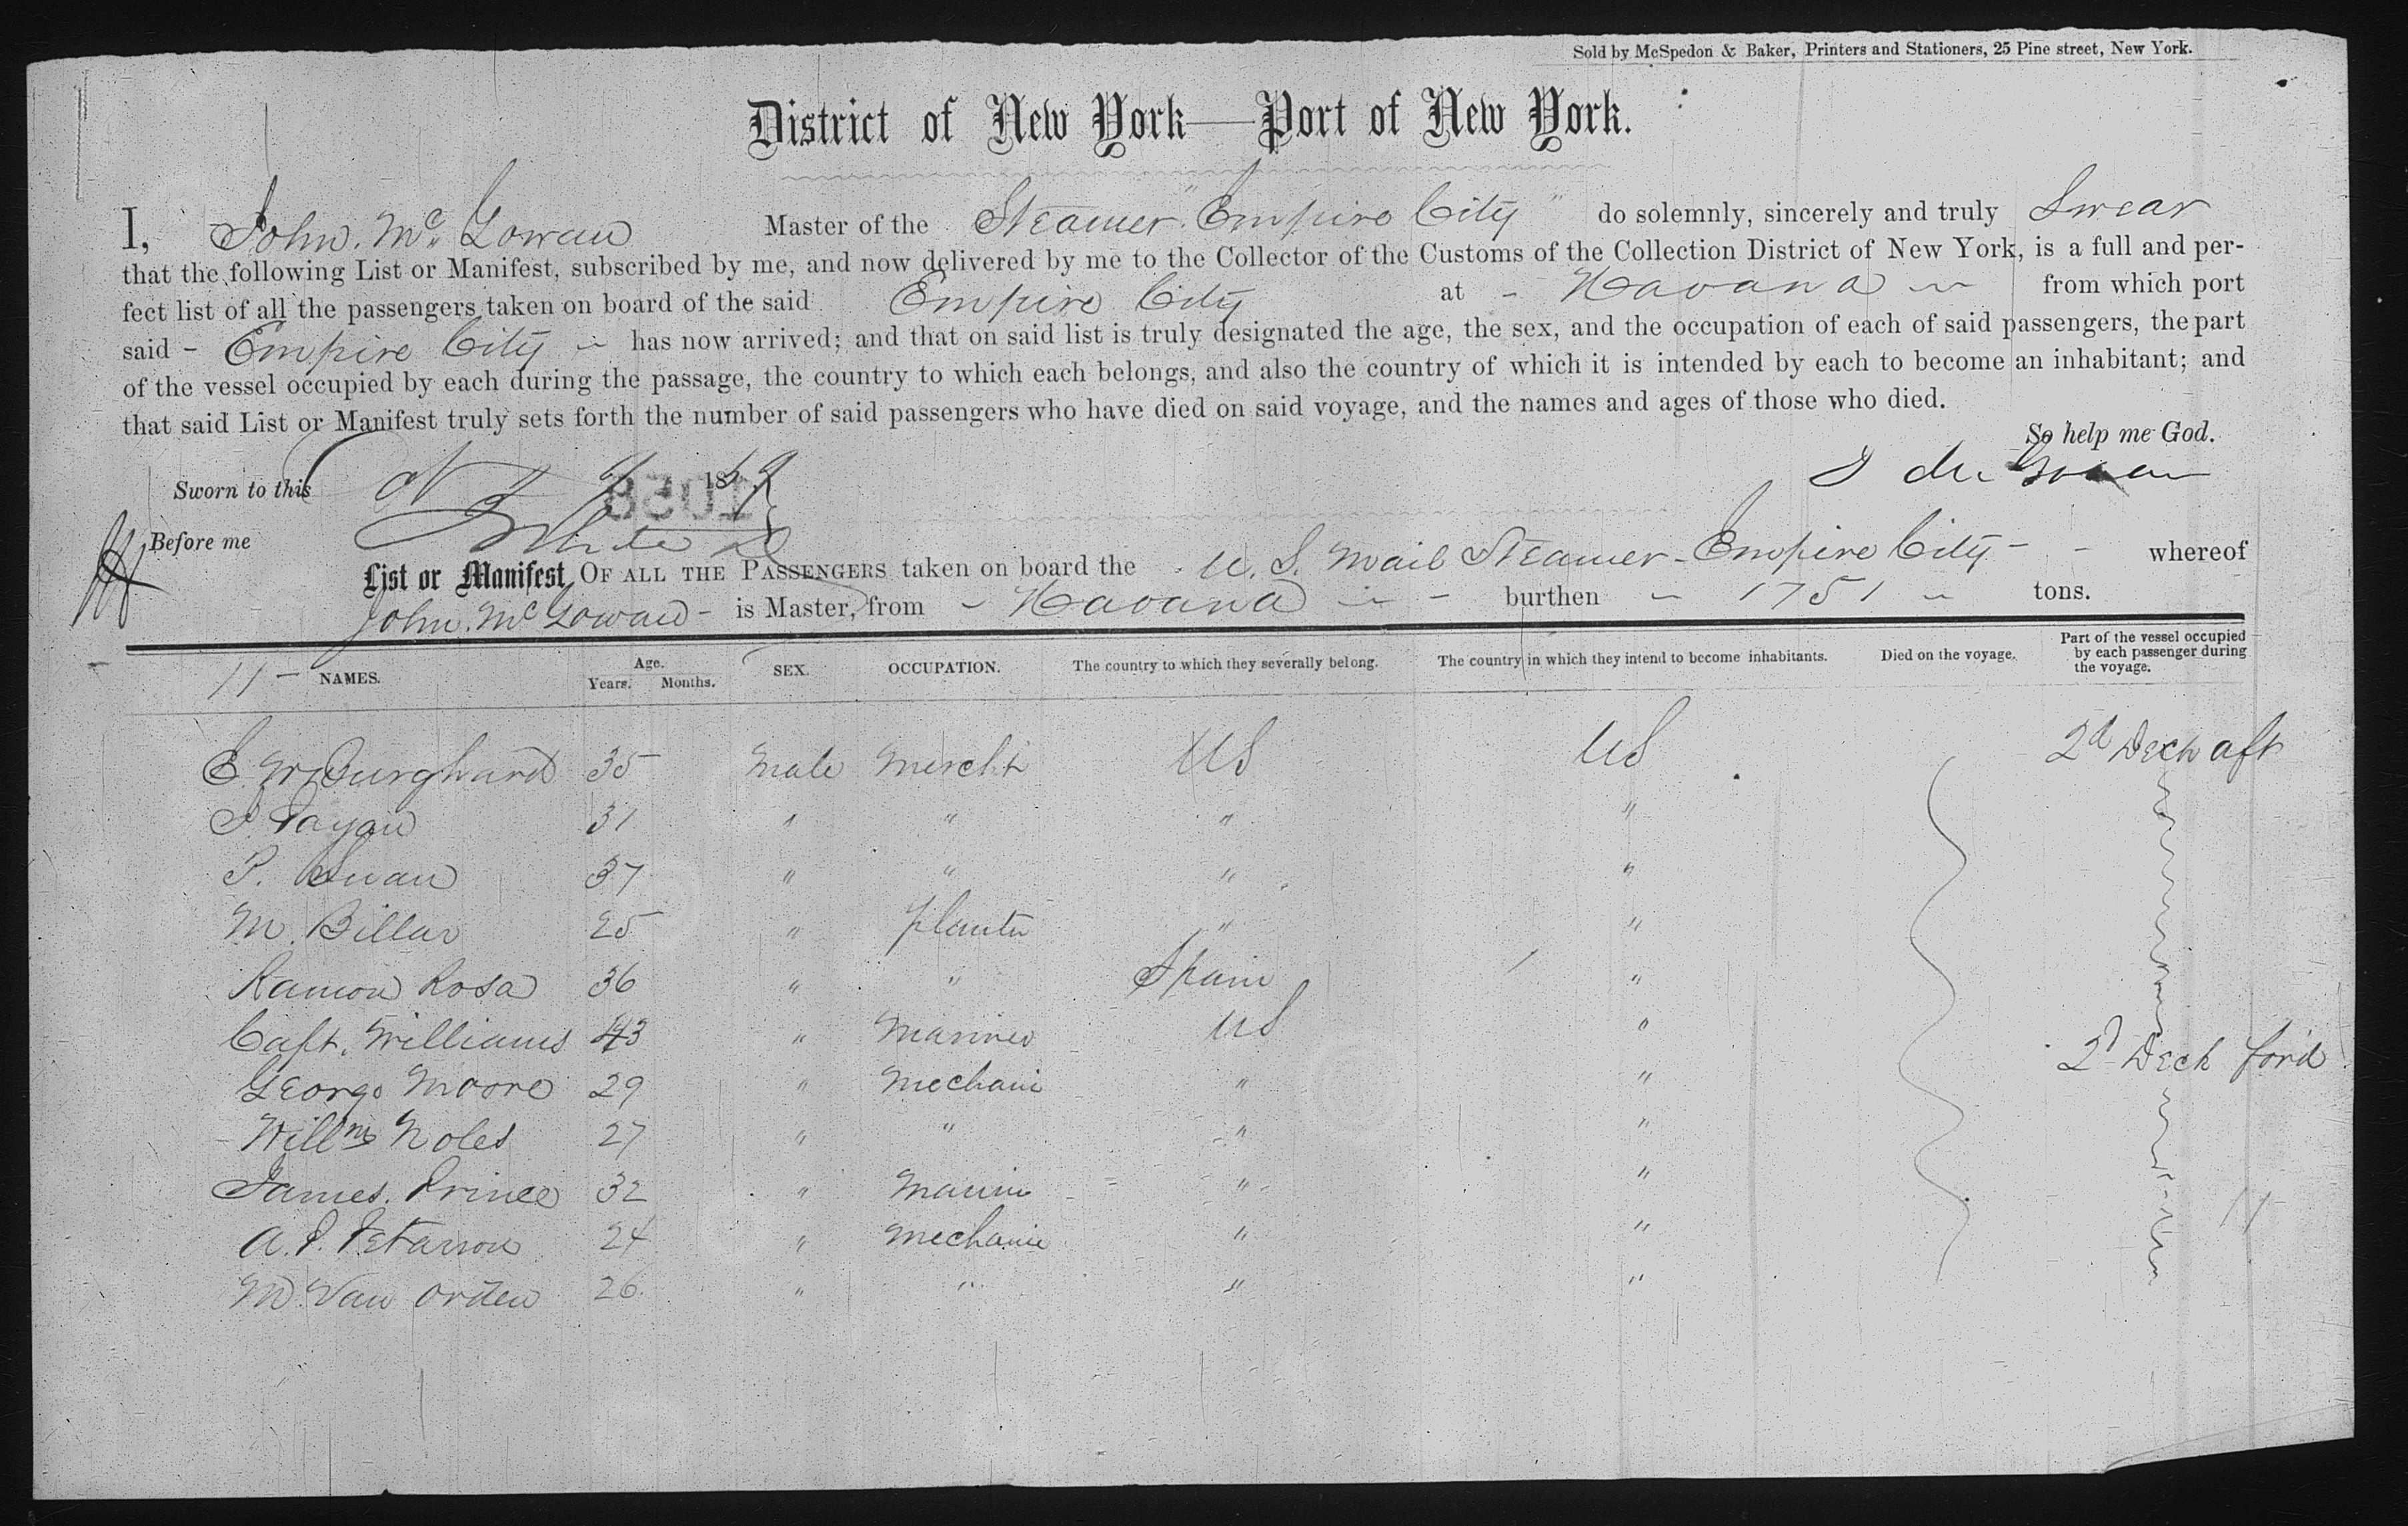 Sold by McSpedon & Baker, Printers and Stationers, 25 Pine street, New York.
District of New York—Port of New York.
I, John. Mc. Gowan Master of the Steamer "Empire City" do solemnly, sincerely and truly Swear
that the following List or Manifest, subscribed by me, and now delivered by me to the Collector of the Customs of the Collection District of New York, is a full and per-
fect list of all the passengers taken on board of the said Empire City at - Havana from which port
said - Empire City - has now arrived; and that on said list is truly designated the age, the sex, and the occupation of each of said passengers, the part
of the vessel occupied by each during the passage, the country to which each belongs, and also the country of which it is intended by each to become an inhabitant; and
that said List or Manifest truly sets forth the number of said passengers who have died on said voyage, and the names and ages of those who died.
So help me God.
Sworn to this 18
Before me
List or Manifest, OF ALL THE PASSENGERS taken on board the U. S. Mail Steamer - Empire City - - whereof
John. Mc Gowan - is Master, from - Havana - burthen - 1751 - tons.
11 - NAMES. Age. Years. Months. SEX. OCCUPATION. The country to which they severally belong. The country in which they intend to become inhabitants. Died on the voyage. Part of the vessel occupied by each passenger during the voyage.
E. W. Burghard 35 Male Mercht US US 2d Deck aft
31 " " " "
P. 37 " " " "
M. Billar 25 " planter " "
Ramon Rosa 36 " " Spain "
Capt. Williams 43 " Mariner US "
George Moore 29 " Mechani " " 2d Deck for'd
Willm Noles 27 " " " "
James. Prince 32 " Marin " "
A. P. Petarson 24 " Mechanic " " 11
M. Van Orden 26 " " " "